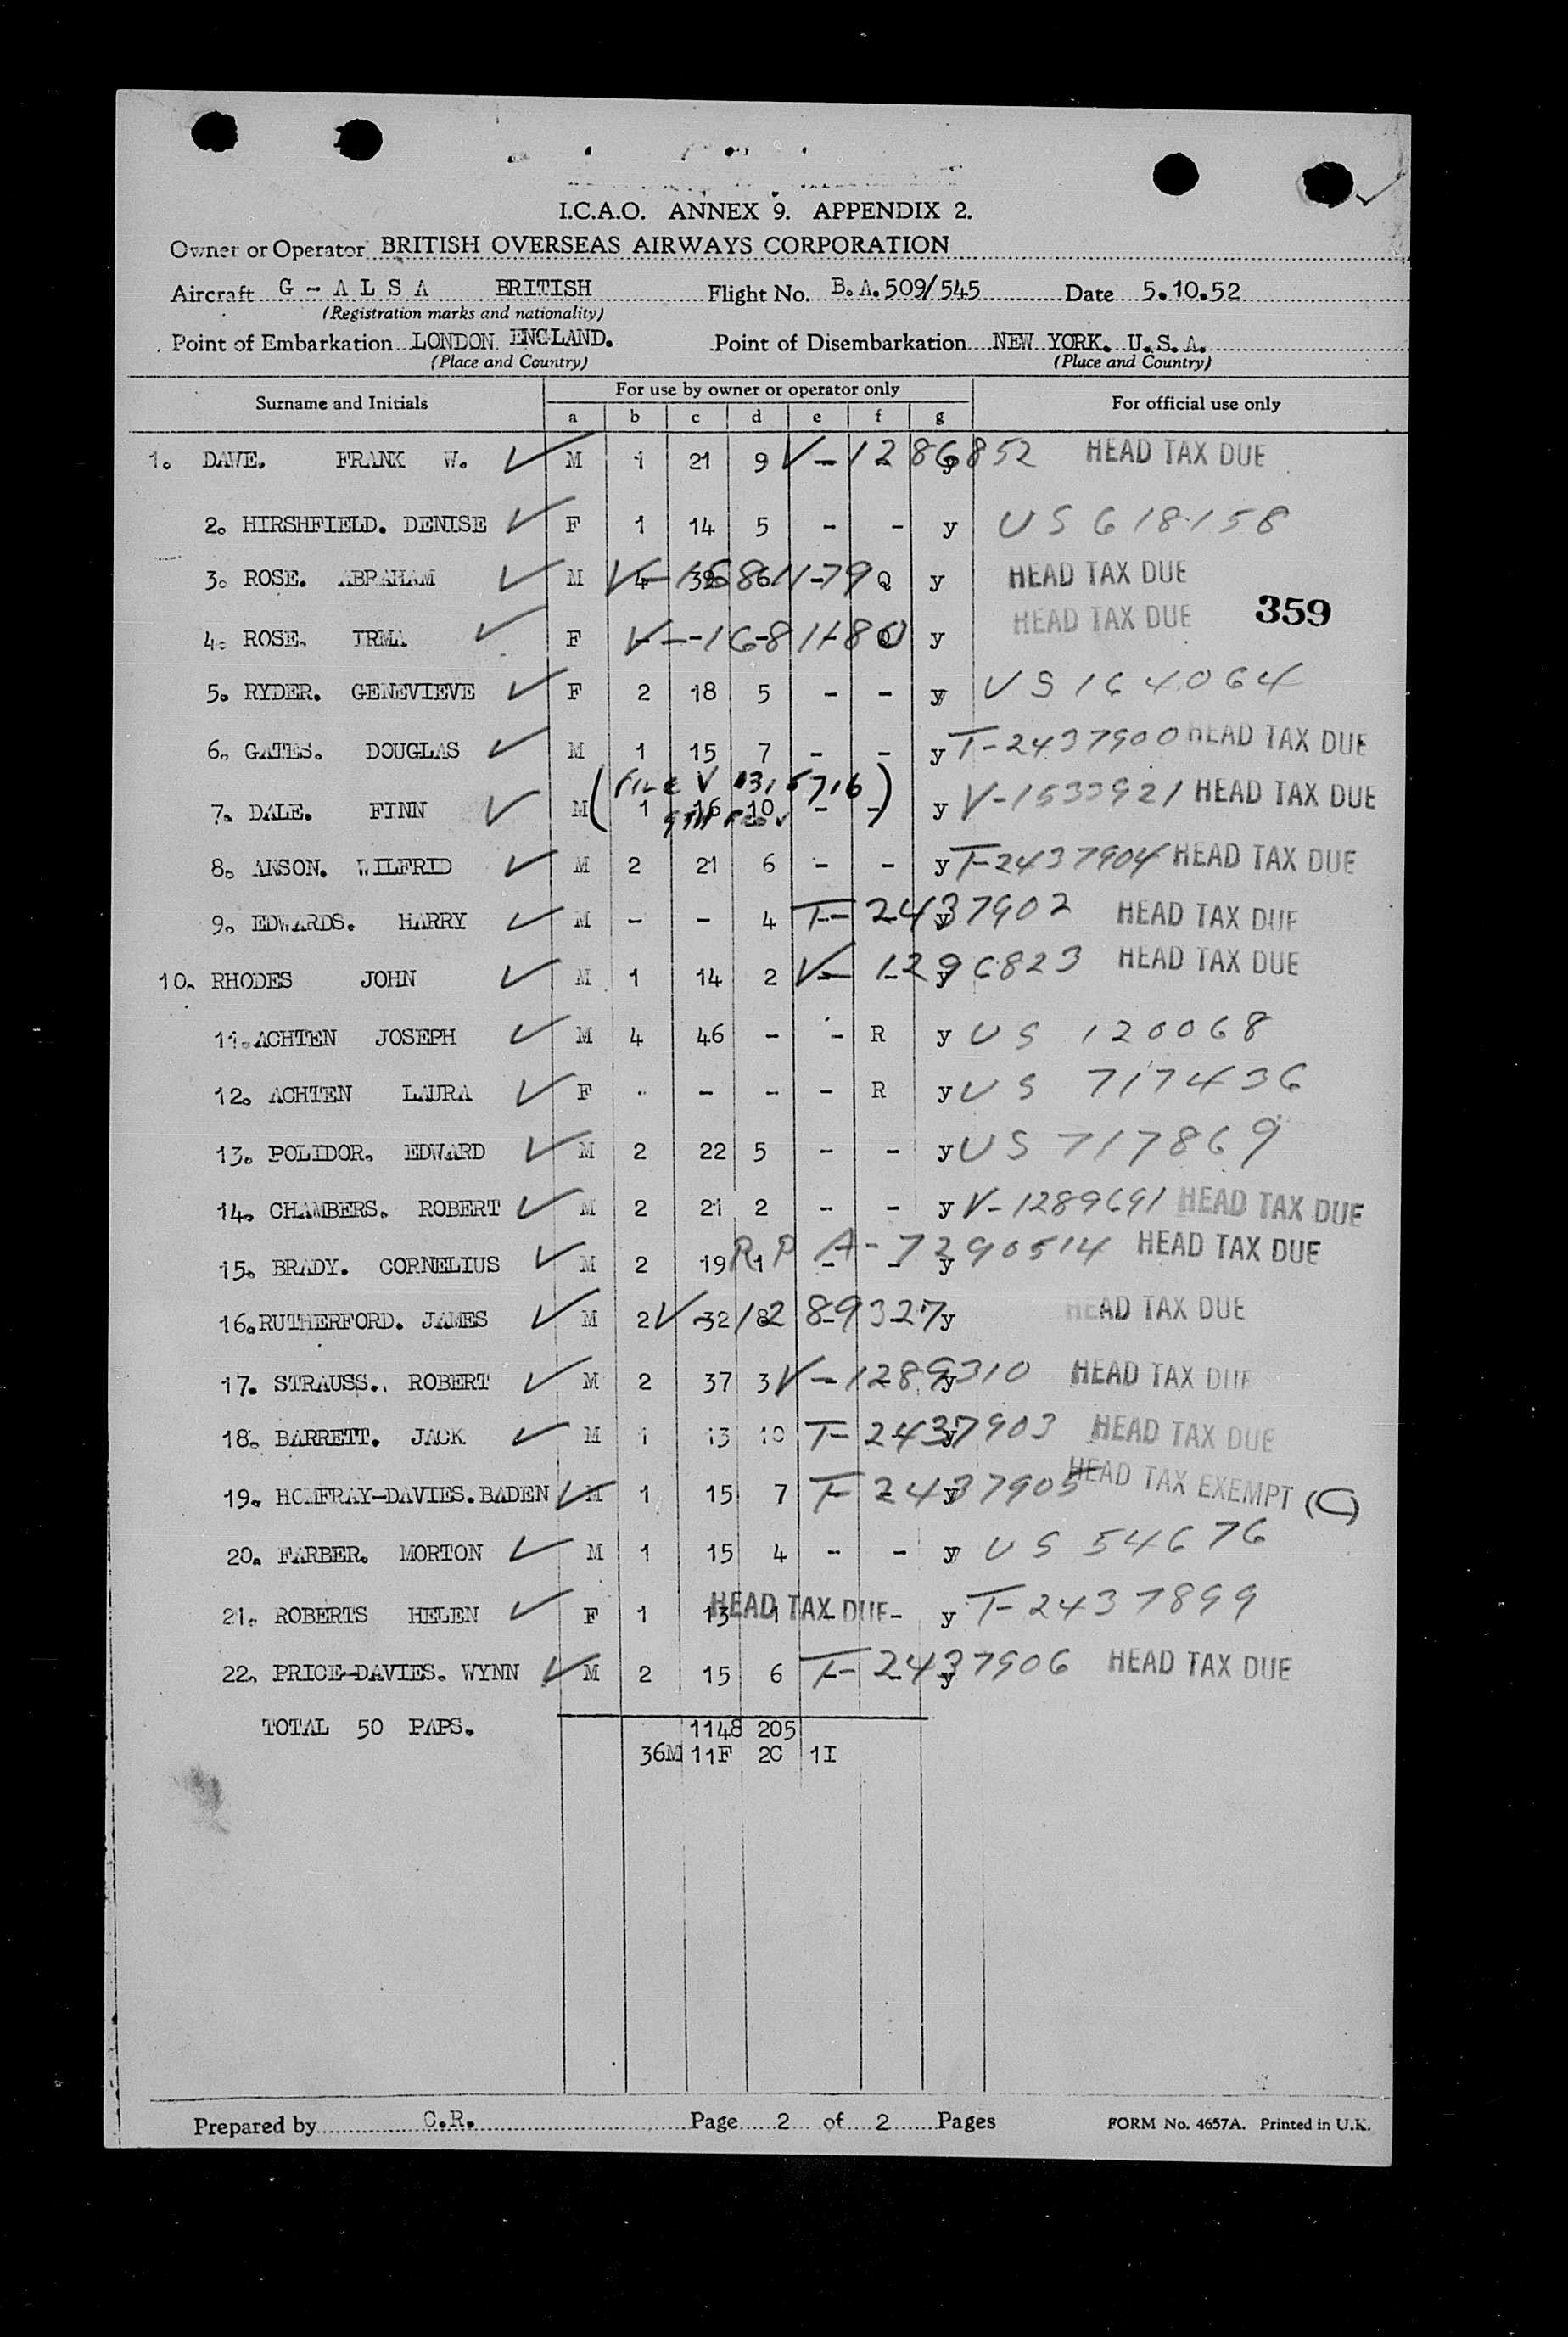 I.C.A.O. ANNEX 9. APPENDIX 2.
Owner or Operator BRITISH OVERSEAS AIRWAYS CORPORATION
Aircraft G - A L S A BRITISH Flight No. B.A.509/545 Date 5.10.52
(Registration marks and nationality)
Point of Embarkation LONDON ENGLAND. Point of Disembarkation NEW YORK. U.S.A.
(Place and Country) (Place and Country)
Surname and Initials For use by owner or operator only For official use only
a b c d e f g
1. DAWE. FRANK W. M 1 21 9 V-1286852 y HEAD TAX DUE
2. HIRSHFIELD. DENISE F 1 14 5 - - y US 618158
3. ROSE. ABRAHAM M 4 V-1681179 Q y HEAD TAX DUE
4. ROSE. IRMA F V-1681180 y HEAD TAX DUE 359
5. RYDER. GENEVIEVE F 2 18 5 - - y US 164064
6. GATES. DOUGLAS M 1 15 7 - - y T-2437900 HEAD TAX DUE
(FILE V )
7. DALE. FINN M 1 16 10 - - y V-1533921 HEAD TAX DUE
9TH
8. ANSON. WILFRID M 2 21 6 - - y T-2437904 HEAD TAX DUE
9. EDWARDS. HARRY M - - 4 T-2437902 y HEAD TAX DUE
10. RHODES JOHN M 1 14 2 V-1296823 y HEAD TAX DUE
11. ACHTEN JOSEPH M 4 46 - - R y US 120068
12. ACHTEN LAURA F - - - - R y US 717436
13. POLIDOR. EDWARD M 2 22 5 - - y US 717869
14. CHAMBERS. ROBERT M 2 21 2 - - y V-1289691 HEAD TAX DUE
15. BRADY. CORNELIUS M 2 19 1 - - y RP A-7290514 HEAD TAX DUE
16. RUTHERFORD. JAMES M 2 32 8 - V-1289327 y HEAD TAX DUE
17. STRAUSS. ROBERT M 2 37 3 V-1289310 y HEAD TAX DUE
18. BARRETT. JACK M 1 13 10 T-2437903 y HEAD TAX DUE
19. HOMFRAY-DAVIES. BADEN M 1 15 7 T-2437905 y HEAD TAX EXEMPT (C)
20. FARBER. MORTON M 1 15 4 - - y US 54676
21. ROBERTS HELEN F 1 13 1 - - HEAD TAX DUE y T-2437899
22. PRICE-DAVIES. WYNN M 2 15 6 T-2437906 y HEAD TAX DUE
TOTAL 50 PAPS. 1148 205
36M 11F 2C 1I
Prepared by C.R. Page 2 of 2 Pages FORM No. 4657A. Printed in U.K.